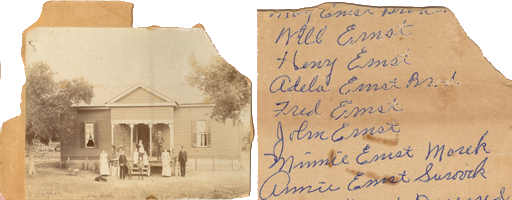 Ernst
Will Ernst
Henry Ernst
Adela Ernst
Fred Ernst
John Ernst
Minnie Ernst Morek
Annie Ernst